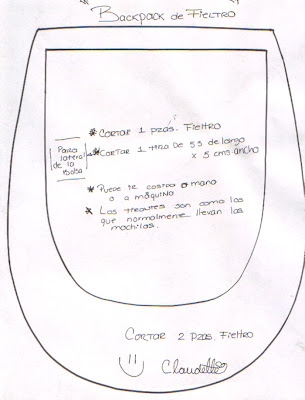 BACKPACK de FIELTRO
* CORTAR 1 pzas. FIEltro
Para lateral de la Bolsa
* CORTAR 1 tira DE 55 de largo
x 5 cms ancho
* Puede se cosido a mano
o a máquina
* Los tirantes son como los
que normalmente llevan las
mochilas.
CORTAR 2 Pzas. FIEltro
Claudette